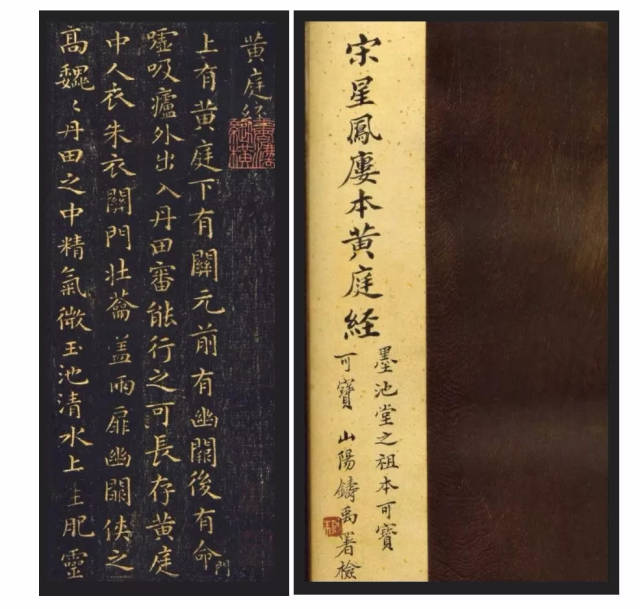 黄庭經
上有黄庭下有關元前有幽關後有命門
噓吸廬外出入丹田審能行之可長存黄庭
中人衣朱衣關門壯蘥盖兩扉幽關俠之
高巍〻丹田之中精氣微玉池清水上生肥靈
宋星鳳廔本黄庭経
墨池堂之祖本可寶
可寶 山陽鑄禹署檢